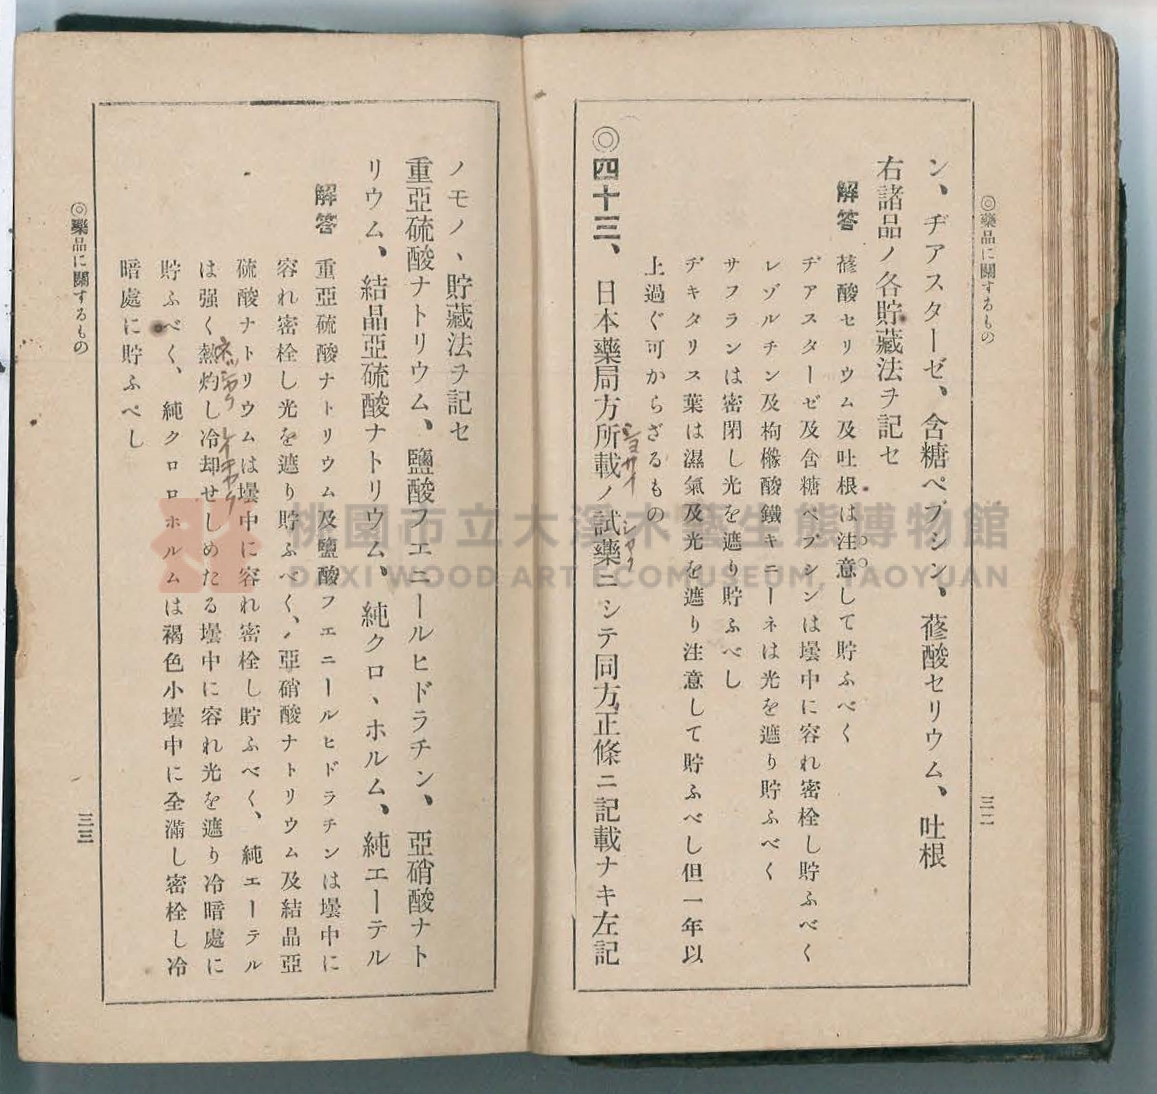 ◎藥品に關するもの
三二
ン、ヂアスターゼ、含糖ペプシン、蓚酸セリウム、吐根
右諸品ノ各貯藏法ヲ記セ
解答 蓚酸セリウム及吐根は注意して貯ふべく
ヂアスターゼ及含糖ペプシンは壜中に容れ密栓し貯ふべく
レゾルチン及枸櫞酸鐵キニーネは光を遮り貯ふべく
サフランは密閉し光を遮り貯ふべし
ヂキタリス葉は濕氣及光を遮り注意して貯ふべし但一年以
上過ぐ可からざるもの
◎四十三、日本藥局方所載ノ試藥ニシテ同方正條ニ記載ナキ左記
ショサイ
シヤク
ノモノヽ貯藏法ヲ記セ
重亞硫酸ナトリウム、鹽酸フエニールヒドラチン、亞硝酸ナト
リウム、結晶亞硫酸ナトリウム、純クロヽホルム、純エーテル
解答 重亞硫酸ナトリウム及鹽酸フエニールヒドラチンは壜中に
容れ密栓し光を遮り貯ふべく、亞硝酸ナトリウム及結晶亞
硫酸ナトリウムは壜中に容れ密栓し貯ふべく、純エーテル
は强く熱灼し冷却せしめたる壜中に容れ光を遮り冷暗處に
ネッシヤク
レイキヤク
貯ふべく、純クロロホルムは褐色小壜中に全滿し密栓し冷
暗處に貯ふべし
◎藥品に關するもの
三三
桃園市立大溪木藝生態博物館
DAXI WOOD ART ECOMUSEUM, TAOYUAN